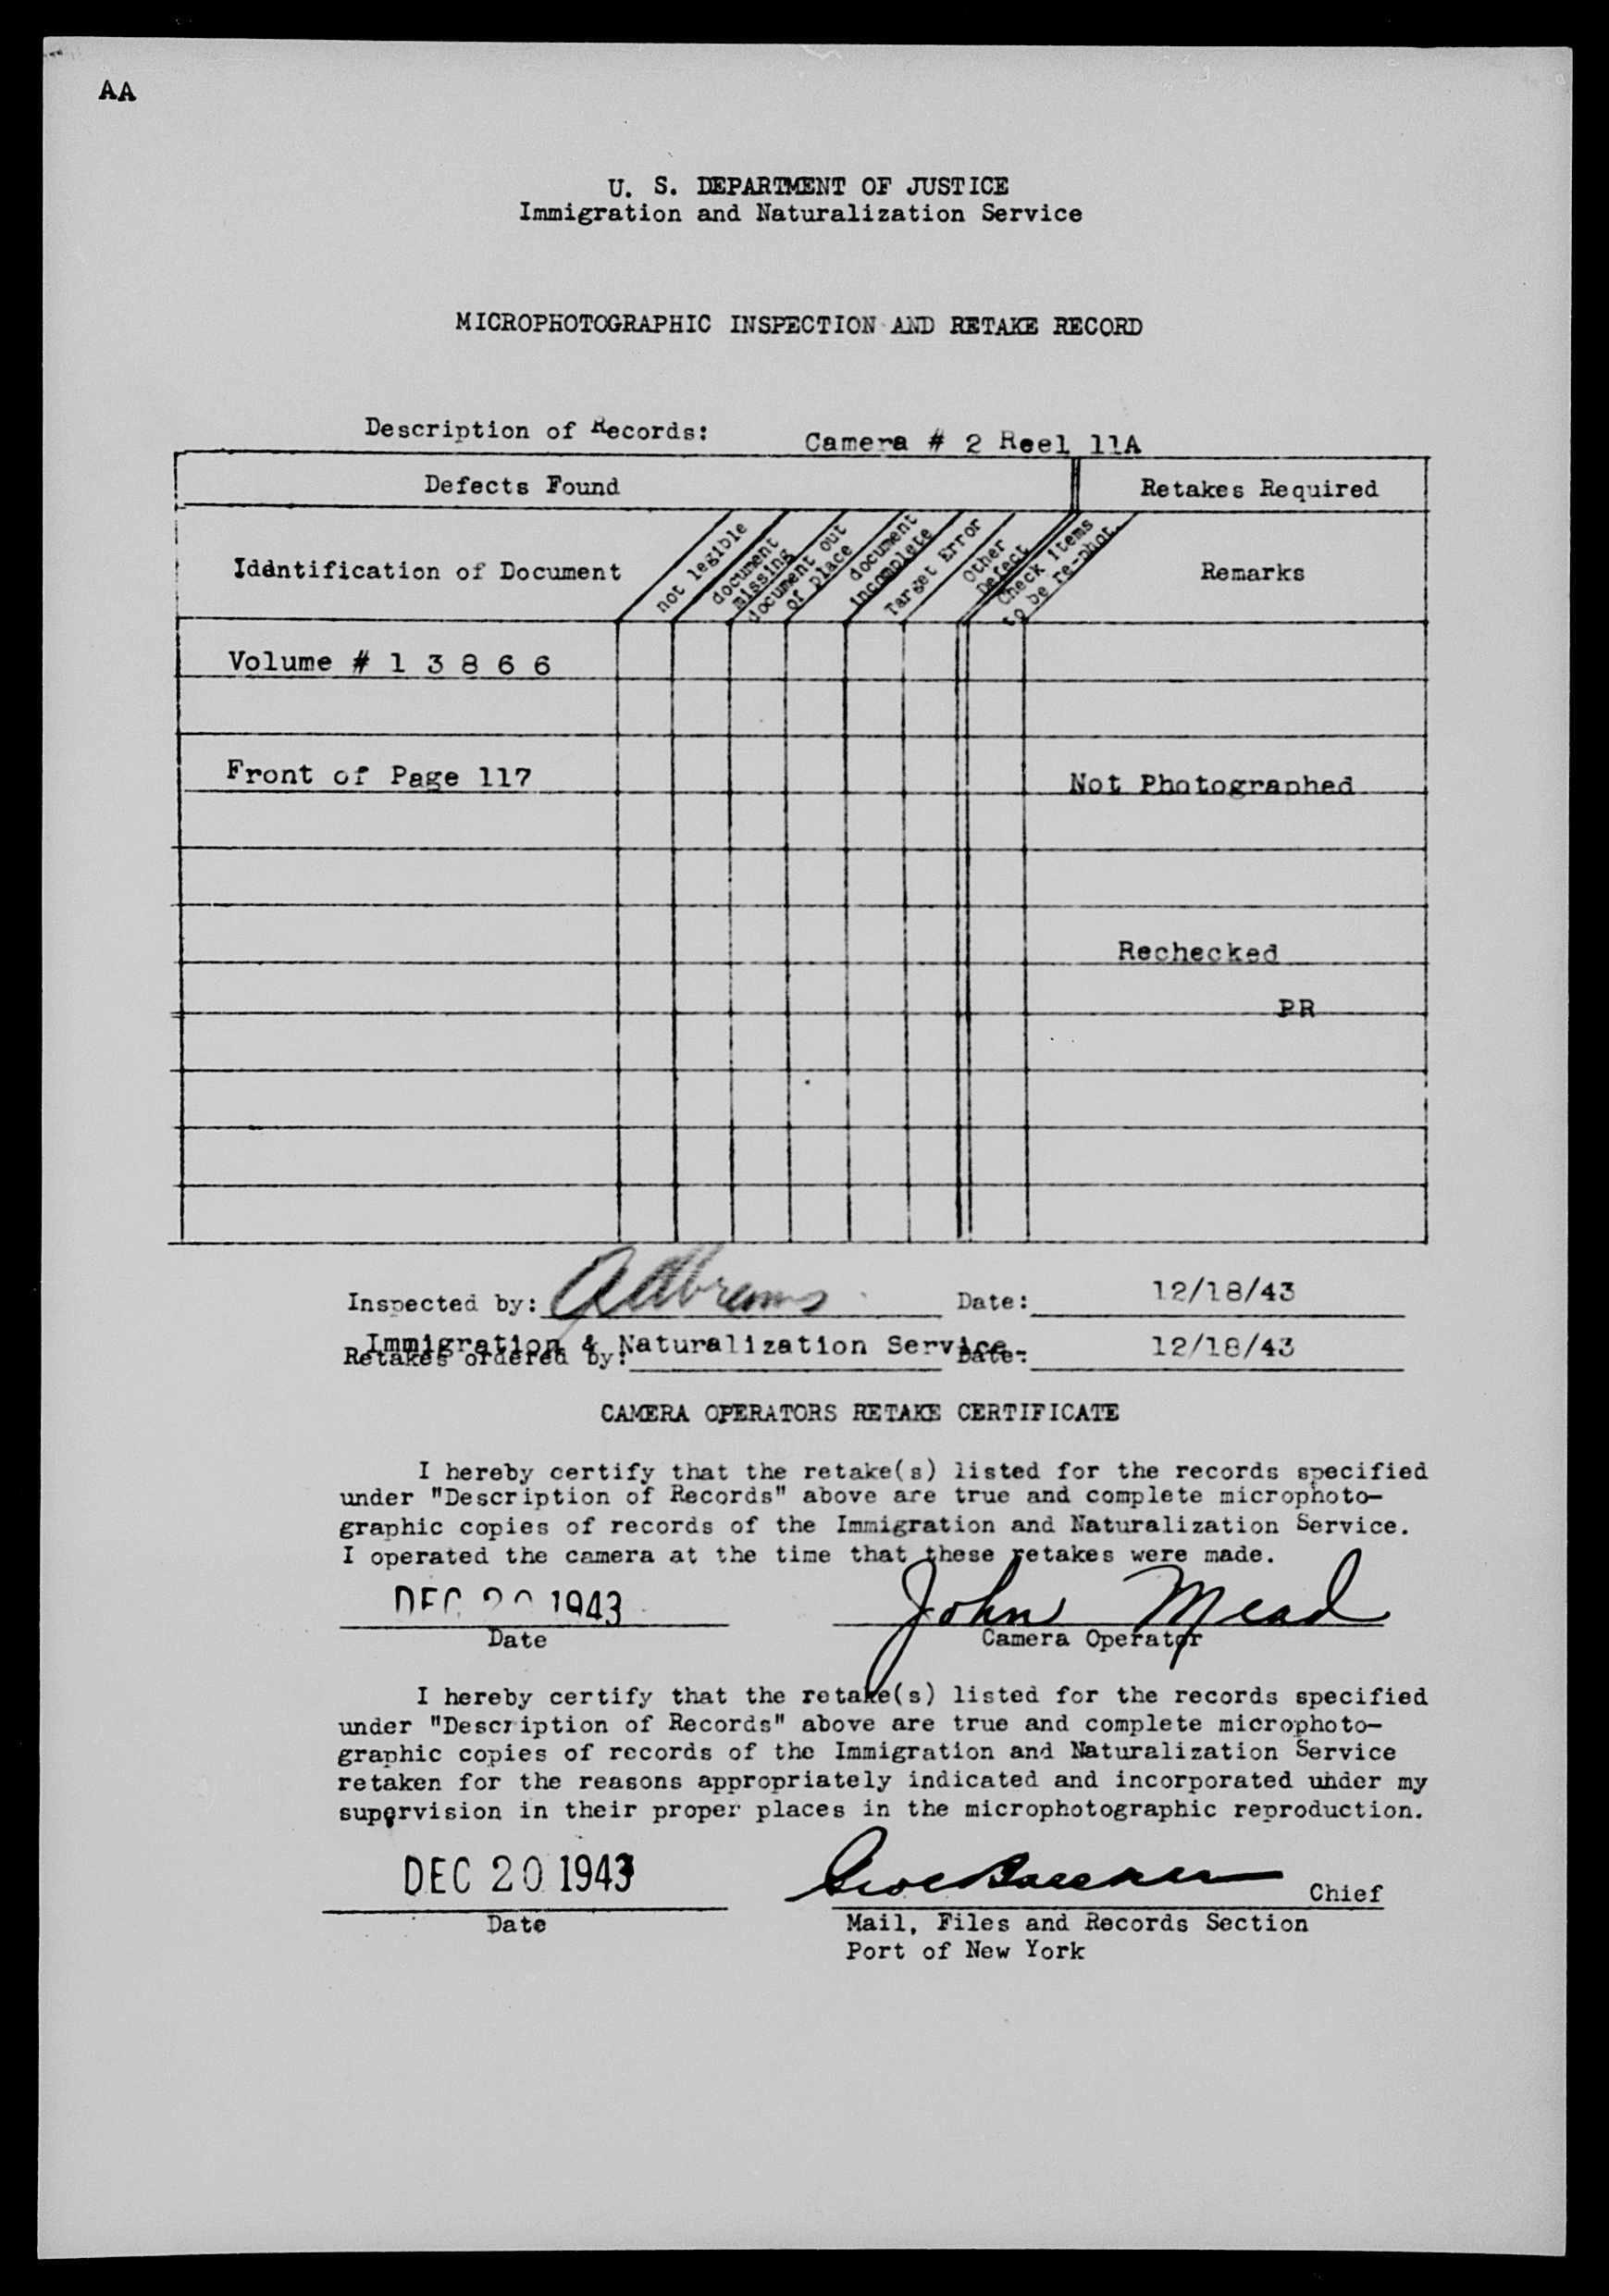 AA
U. S. DEPARTMENT OF JUSTICE
Immigration and Naturalization Service
MICROPHOTOGRAPHIC INSPECTION AND RETAKE RECORD
Description of Records: Camera # 2 Reel 11A
Defects Found Retakes Required
Idåntification of Document
not legible
document
missing
document out
of place
document
incomplete
Target Error
Other
Defect
Check items
to be re-phot.
Remarks
Volume # 1 3 8 6 6
Front of Page 117 Not Photographed
Rechecked
PR
Inspected by: A Abrams Date: 12/18/43
Immigration & Naturalization Service
Retakes ordered by: Date: 12/18/43
CAMERA OPERATORS RETAKE CERTIFICATE
I hereby certify that the retake(s) listed for the records specified
under "Description of Records" above are true and complete microphoto-
graphic copies of records of the Immigration and Naturalization Service.
I operated the camera at the time that these retakes were made.
DEC 20 1943 John Mead
Date Camera Operator
I hereby certify that the retake(s) listed for the records specified
under "Description of Records" above are true and complete microphoto-
graphic copies of records of the Immigration and Naturalization Service
retaken for the reasons appropriately indicated and incorporated under my
supervision in their proper places in the microphotographic reproduction.
DEC 20 1943 Chief
Date Mail, Files and Records Section
Port of New York